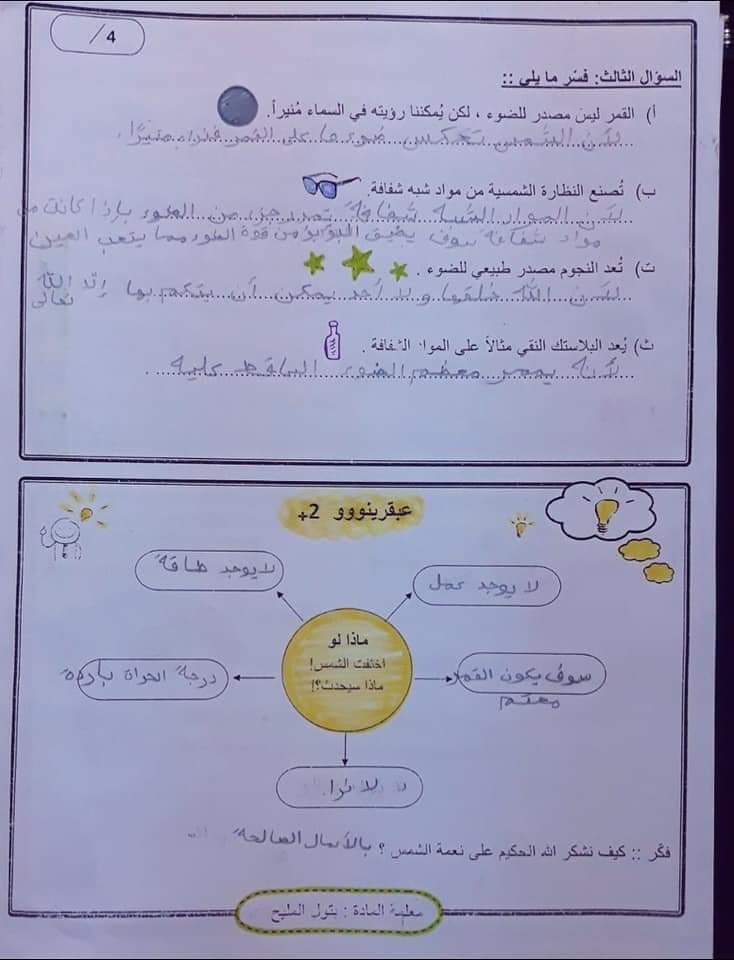 4 /
السؤال الثالث: فسّر ما يلي ::
أ) القمر ليس مصدر للضوء ، لكن يُمكننا رؤيته في السماء مُنيراً.
لأن الشمس تعكس ضوءها على القمر فنراه منيرًا.
ب) تُصنع النظارة الشمسية من مواد شبه شفافة.
لأن المواد الشبه شفافة تمرر جزء من الضوء وإذا كانت من
مواد شفافة سوف يضيق البؤبؤ من قوة الضوء مما يتعب العين
ت) تُعد النجوم مصدر طبيعي للضوء .
لأن الله خلقها ولا أحد يمكن أن يتحكم بها إلا الله
تعالى
ث) يُعد البلاستك النقي مثالاً على المواد الشفافة .
لأنه يمرر معظم الضوء الساقط عليه .
عبقرينووو 2+
لا يوجد طاقة
لا يوجد عمل
ماذا لو
اختفت الشمس!
ماذا سيحدث؟!
سوف يكون القمر
معتم
درجة الحراة باردة
لا نرا
فكّر :: كيف نشكر الله الحكيم على نعمة الشمس ؟ بالأعمال الصالحة
معلمة المادة : بتول المليح